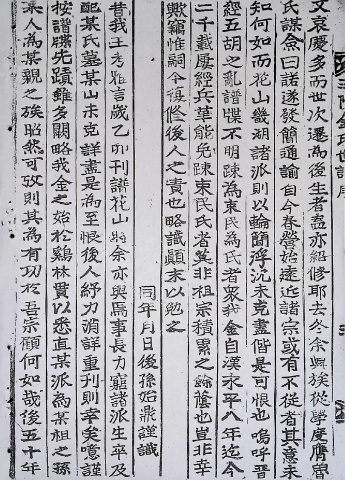 文哀慶多而世次遷為後生者盍亦紹修耶去冬余與族從學度膺魯
氏謀僉曰諾遂發簡通諭自今春營始遠近諸宗或有不從者其意未
知何如而花山幾湖諸派則以輪簡浮沉未克盡偕是可恨也嗚呼晋
經五胡之亂譜牒不明踈為束民為氏者衆我金自漢永平八年迄今
二千載屢經兵革能免踈束民氏者莫非祖宗積累之餘蔭也豈非幸
歟竊惟嗣今復修後人之責也略識顛末以勉之
同年月日後孫始鼎謹識
昔我王考雅言歲乙卯刊譜花山時余亦與焉事長力窮諸派生卒及
配某氏墓某山未克詳盡是為至恨後人紓力消詳重刊則幸矣噫謹
按譜牒先蹟雖多闕略我金之始於鷄林貫以悉直某派為某祖之孫
某人為某親之族昭然可攷則其為有功於吾宗顧何如哉後五十年